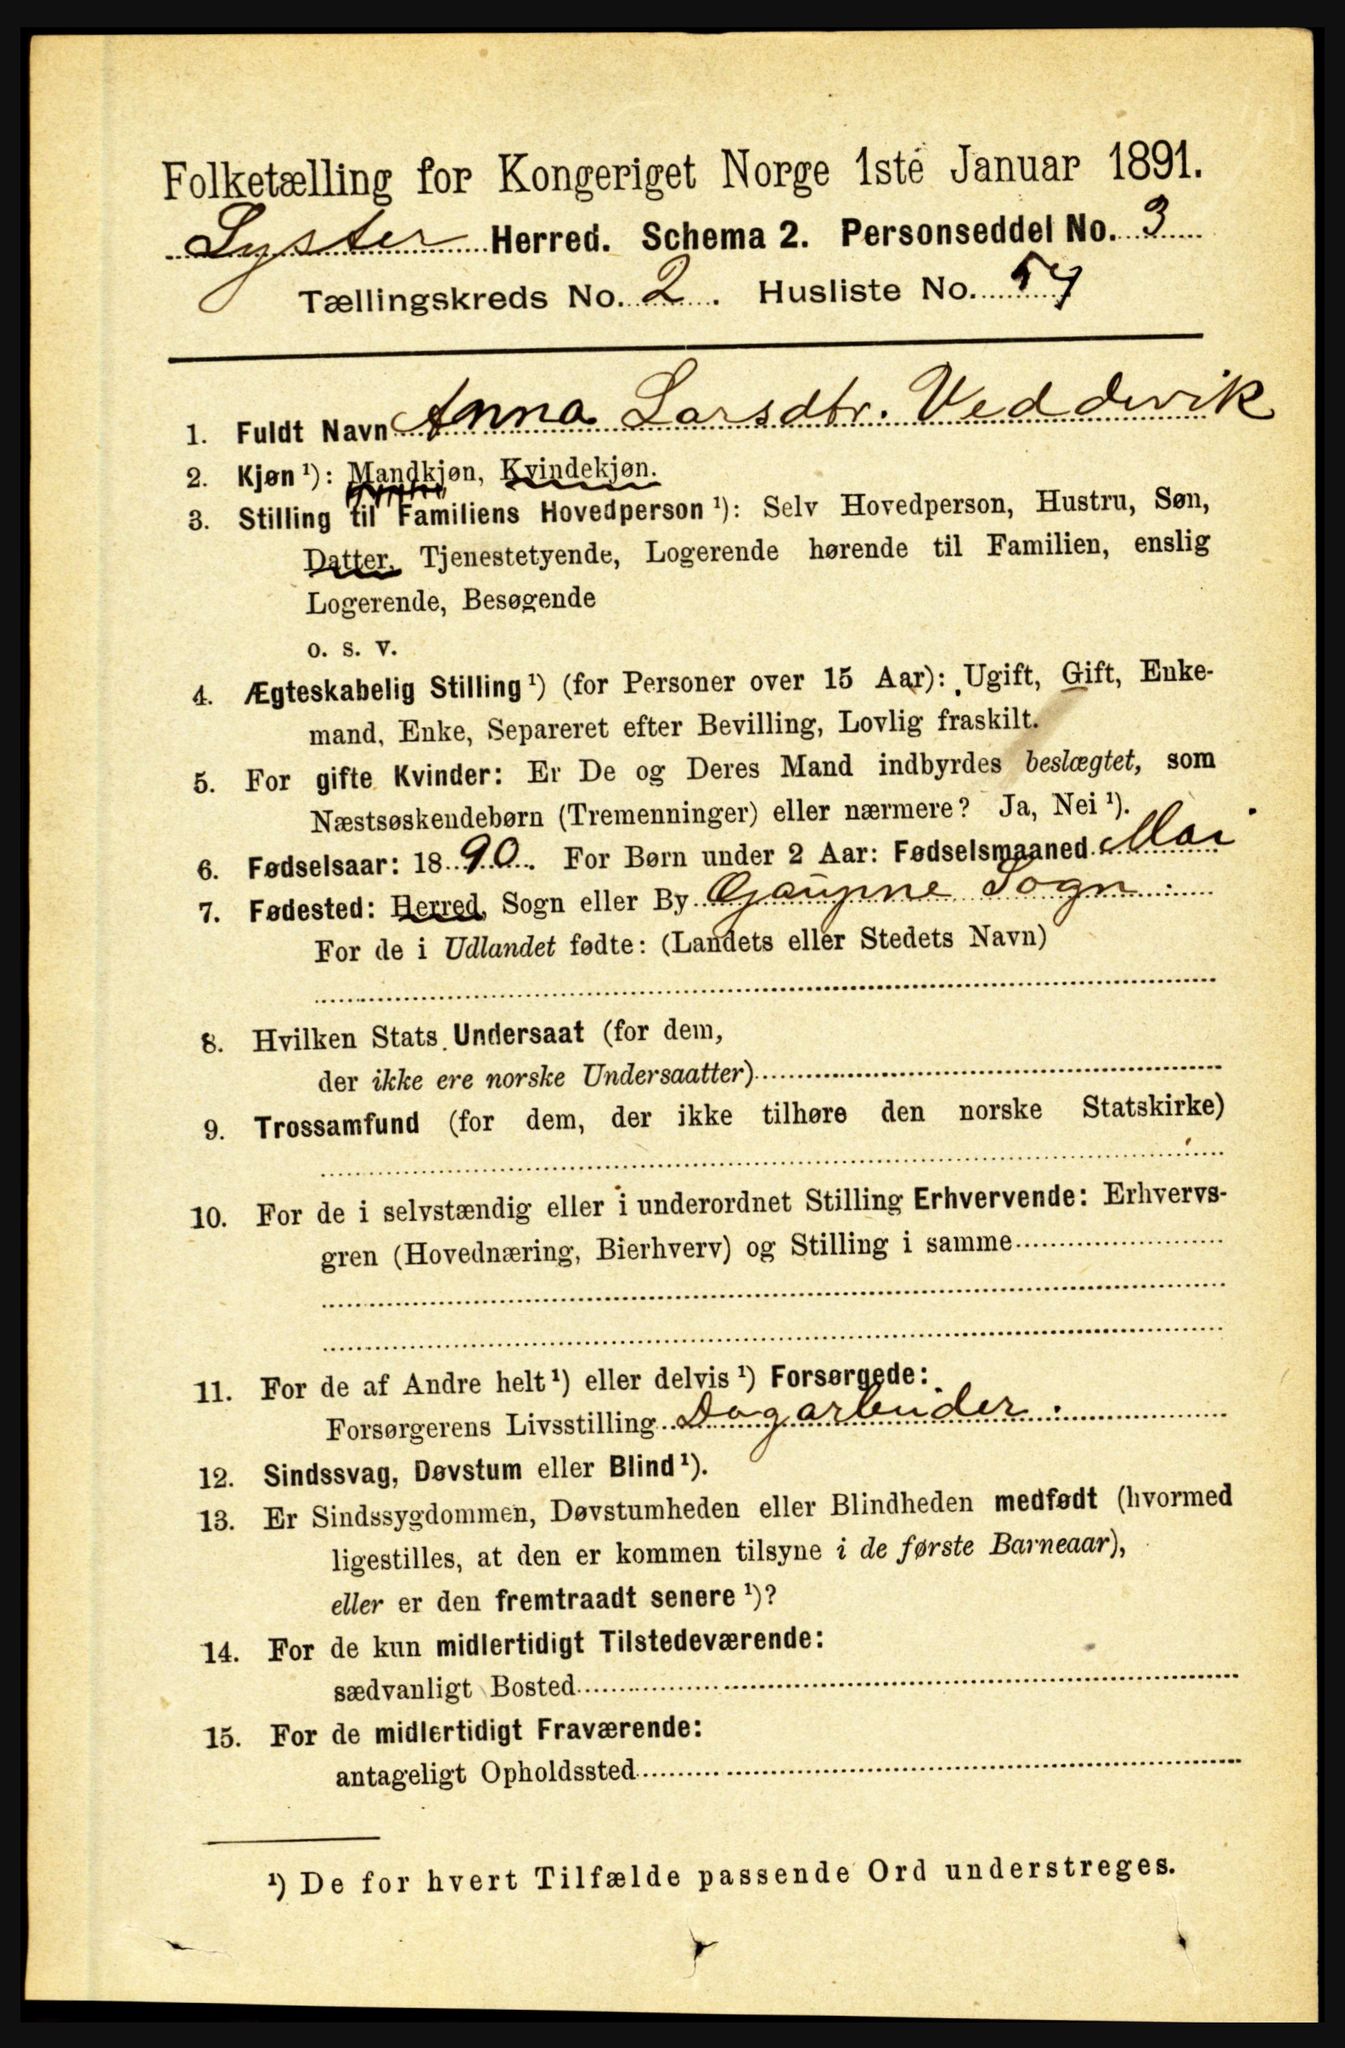 Folketælling for Kongeriget Norge 1ste Januar 1891.
Lyster Herred. Schema 2. Personseddel No. 3
Tællingskreds No. 2. Husliste No. 57
1. Fuldt Navn Anna Larsdtr. Veddevik
2. Kjøn ¹): Mandkjøn, Kvindekjøn.
3. Stilling til Familiens Hovedperson ¹): Selv Hovedperson, Hustru, Søn,
Datter, Tjenestetyende, Logerende hørende til Familien, enslig
Logerende, Besøgende
o. s. v.
4. Ægteskabelig Stilling ¹) (for Personer over 15 Aar): Ugift, Gift, Enke-
mand, Enke, Separeret efter Bevilling, Lovlig fraskilt.
5. For gifte Kvinder: Er De og Deres Mand indbyrdes beslægtet, som
Næstsøskendebørn (Tremenninger) eller nærmere? Ja, Nei ¹).
6. Fødselsaar: 1890. For Børn under 2 Aar: Fødselsmaaned Mai
7. Fødested: Herred, Sogn eller By Gaupne Sogn.
For de i Udlandet fødte: (Landets eller Stedets Navn)
8. Hvilken Stats Undersaat (for dem,
der ikke ere norske Undersaatter)
9. Trossamfund (for dem, der ikke tilhøre den norske Statskirke)
10. For de i selvstændig eller i underordnet Stilling Erhvervende: Erhvervs-
gren (Hovednæring, Bierhverv) og Stilling i samme
11. For de af Andre helt ¹) eller delvis ¹) Forsørgede:
Forsørgerens Livsstilling Dagarbeider.
12. Sindssvag, Døvstum eller Blind ¹).
13. Er Sindssygdommen, Døvstumheden eller Blindheden medfødt (hvormed
ligestilles, at den er kommen tilsyne i de første Barneaar),
eller er den fremtraadt senere ¹)?
14. For de kun midlertidigt Tilstedeværende:
sædvanligt Bosted
15. For de midlertidigt Fraværende:
antageligt Opholdssted
¹) De for hvert Tilfælde passende Ord understreges.